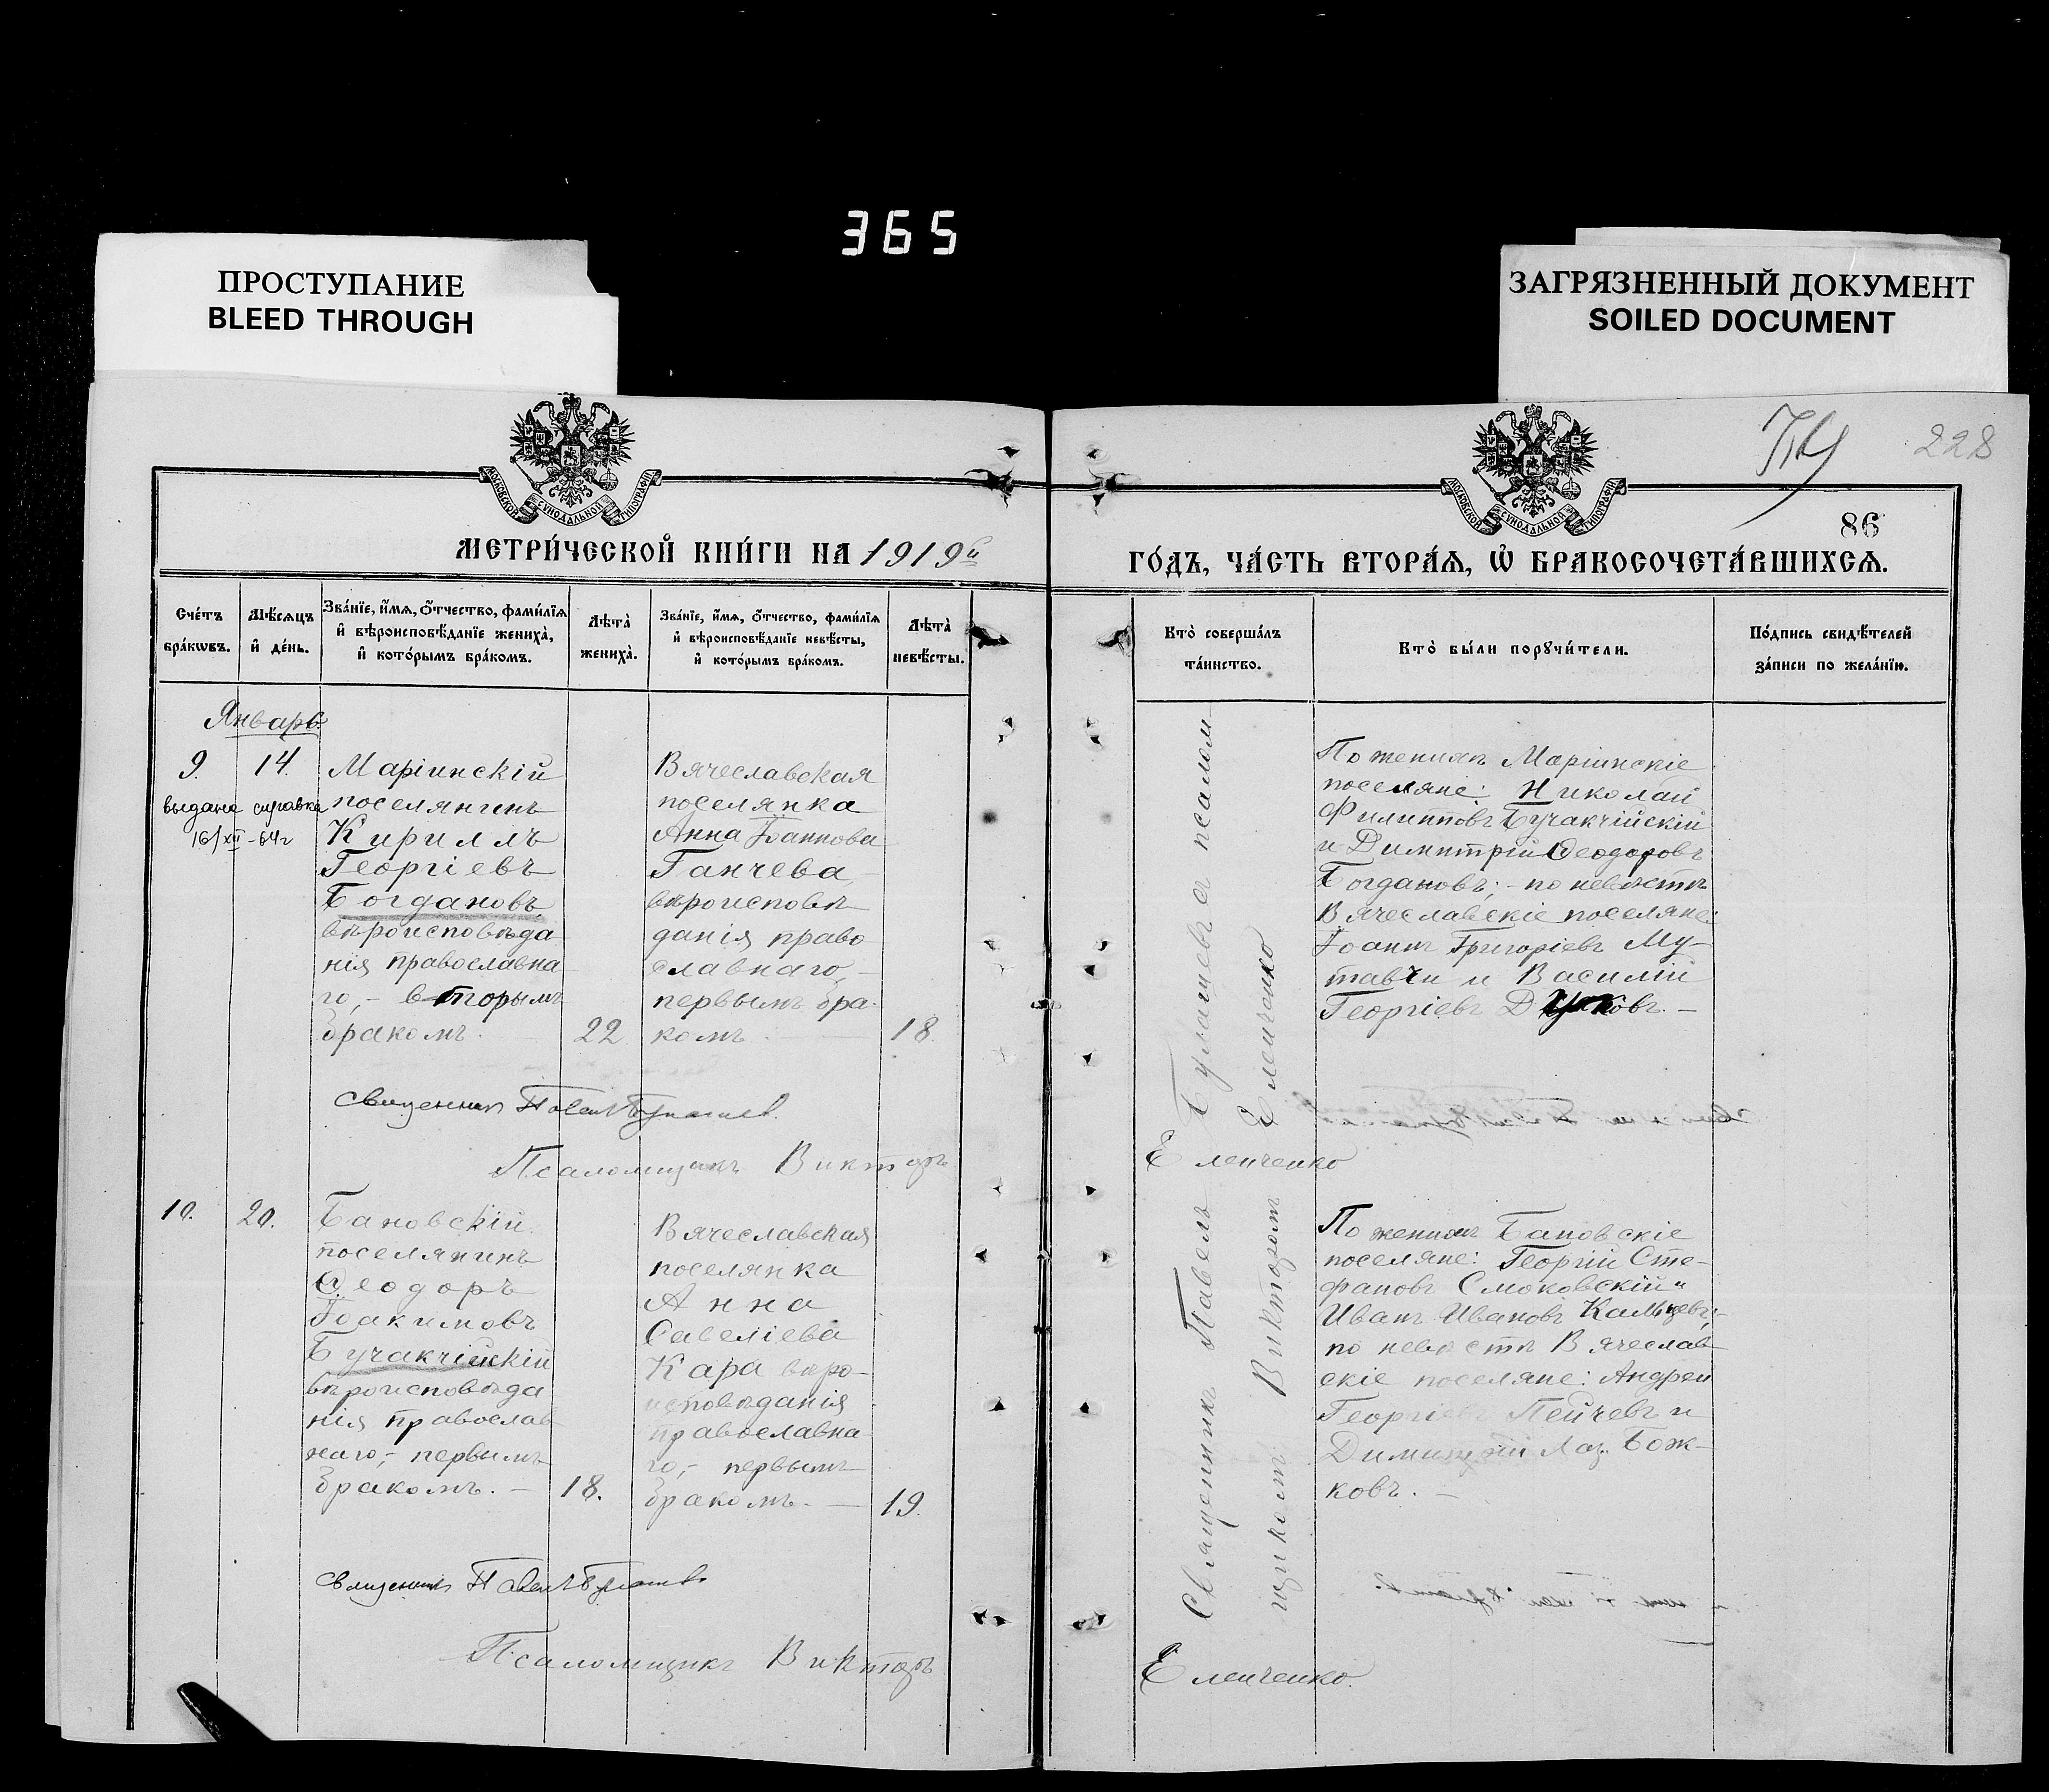 365
ПРОСТУПАНИЕ
BLEED THROUGH
ЗАГРЯЗНЕННЫЙ ДОКУМЕНТ
SOILED DOCUMENT
МОСКОВСКОЙ СѴНОДАЛЬНОЙ ТИПОГРАФІИ
МОСКОВСКОЙ СѴНОДАЛЬНОЙ ТИПОГРАФІИ
228
86
МЕТРИ́ЧЕСКОЙ КНИ́ГИ НА 1919й
ГО́ДЪ, ЧА́СТЬ ВТОРА́Ѧ, Ѡ҆ БРАКОСОЧЕТА́ВШИХСѦ.
Сче́тъ бра́кѡвъ.
Мѣ́сѧцъ и҆ де́нь.
Зва́нїе, и҆́мѧ, ѻ҆́тчество, фами́лїѧ
и҆ вѣроисповѣ́данїе жениха̀,
и҆ кото́рымъ бра́комъ.
Лѣта̀ жениха̀.
Зва́нїе, и҆́мѧ, ѻ҆́тчество, фами́лїѧ
и҆ вѣроисповѣ́данїе невѣ́сты,
и҆ кото́рымъ бра́комъ.
Лѣта̀ невѣ́сты.
Кто̀ соверша́лъ
та́инство.
Кто̀ бы́ли порꙋчи́тели.
По́дпись свидѣ́телей
за́писи по жела́нїю.
Январь
9.
14.
выдана справка
16/XII-64г
Маріинскій
поселянинъ
Кириллъ
Георгіевъ
Богдановъ,
вѣроисповѣда
нія православна
го,- вторымъ
бракомъ.
22
Вячеславская
поселянка
Анна Іоаннова
Ганчева,
вѣроисповѣ
данія право
славнаго,-
первымъ бра-
комъ.
18
По женихѣ Маріинскіе
поселяне: Николай
Филипповъ Бучакчійскій
и Димитрій Ѳеодоровъ
Богдановъ; - по невѣстѣ
Вячеславскіе поселяне:
Іоаннъ Григоріевъ Му-
тавчи и Василій
Георгіевъ
Священникъ Павелъ Булащевъ
Псаломщикъ Викторъ
Еленченко
Священникъ Павелъ Булащевъ и псалом
щикомъ Викторомъ Еленченко
10.
20.
Бановскій
поселянинъ
Ѳеодоръ
Іоакимовъ
Бучакчійскій
вѣроисповѣда
нія православ
наго,- первымъ
бракомъ.-
18.
Вячеславская
поселянка
Анна
Савеліева
Кара вѣро-
исповѣданія
православна
го,- первымъ
бракомъ.-
19.
По женихѣ Бановскіе
поселяне: Георгій Сте-
фановъ Смоковскій и
Иванъ Ивановъ Кальчевъ;-
по невѣстѣ Вячеслав
скіе поселяне: Андрей
Георгіевъ Пейчевъ и
Димитрій Лаз. Бож-
ковъ.-
Священникъ Павелъ Булащевъ
Псаломщикъ Викторъ
Еленченко.